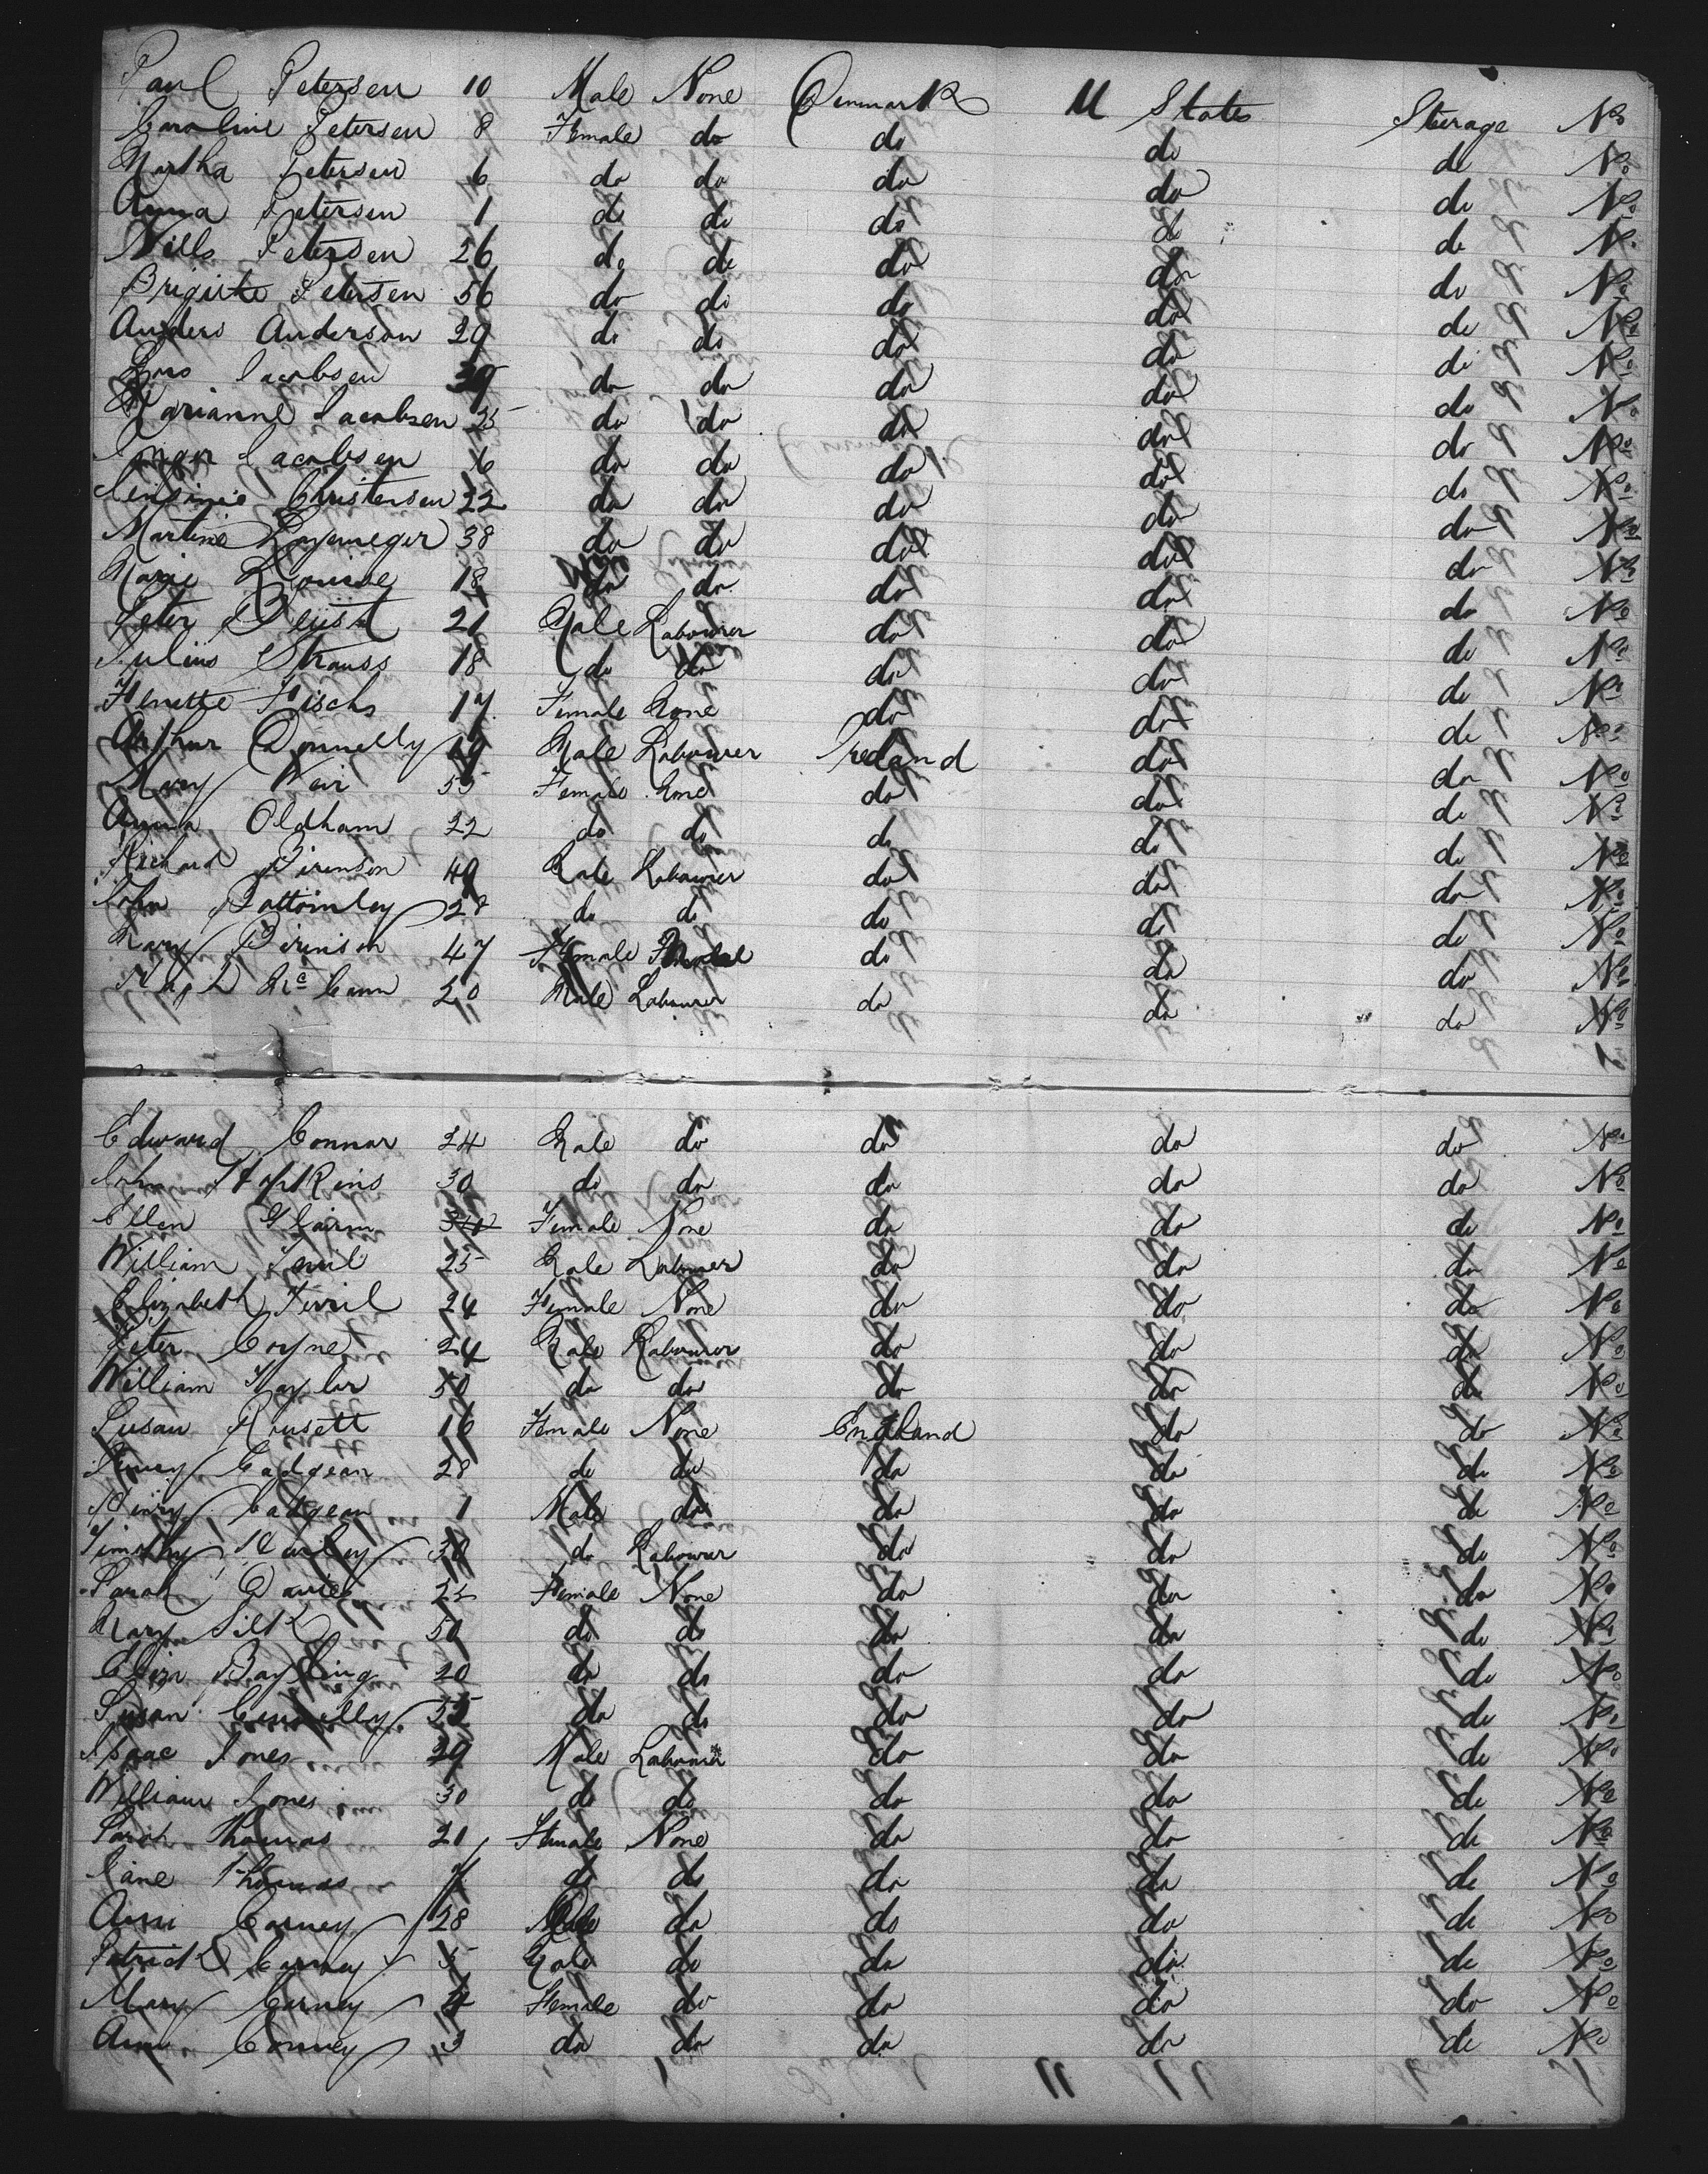 Paul Petersen 10 Male None Denmark U States Sterage No
Caroline Petersen 8 Female do do do do No
Martha Petersen 6 do do do do do No
Anna Petersen 1 do do do do do No
Nills Petersen 26 do do do do do No
Brigitte Petersen 56 do do do do do No
Anders Anderson 29 do do do do do No
Lars Jacobsen 39 do do do do do No
Marianne Jacobsen 25 do do do do do No
Inger Jacobsen 6 do do do do do No
Christensen 22 do do do do do No
Martine 38 do do do do do No
Marie Louise 18 do do do do do No
Peter 21 Male Labourer do do do No
Julius Strauss 18 do do do do do No
Henette Fischs 17 Female None do do do No
Arthur Donnelly 19 Male Labourer Ireland do do No
Mary Weir 55 Female None do do do No
Anna Oldham 22 do do do do do No
Richard Birmson 49 Male Labourer do do do No
John Bottomley 28 do do do do do No
Mary Birnison 47 Female do do do No
Mc Cann 20 Male Labourer do do do No
Edward Connor 24 Male do do do do No
John Hopkins 30 do do do do do No
Ellen Female None do do do No
William Terril 25 Male Labourer do do do No
Elizabeth Terril 24 Female None do do do No
Peter Coyne 24 Male Labourer do do do No
William Taylor 50 do do do do do No
Susan Rousett 16 Female None England do do No
Cadgean 28 do do do do do No
Henry Cadgean 1 Male do do do do No
Timothy Hurley 30 do Labourer do do do No
Sarah Davies 22 Female None do do do No
Mary Silk 50 do do do do do No
Eliza Bayling 20 do do do do do No
Susan 55 do do do do do No
Isaac Jones 29 Male Labourer do do do No
William Jones 30 do do do do do No
Sarah Thomas 21 Female None do do do No
Jane Thomas do do do do do No
Ann Carney 28 do do do do No
Patrick Carney 5 Male do do do do No
Mary Carney 4 Female do do do do No
Ann Carney 3 do do do do do No